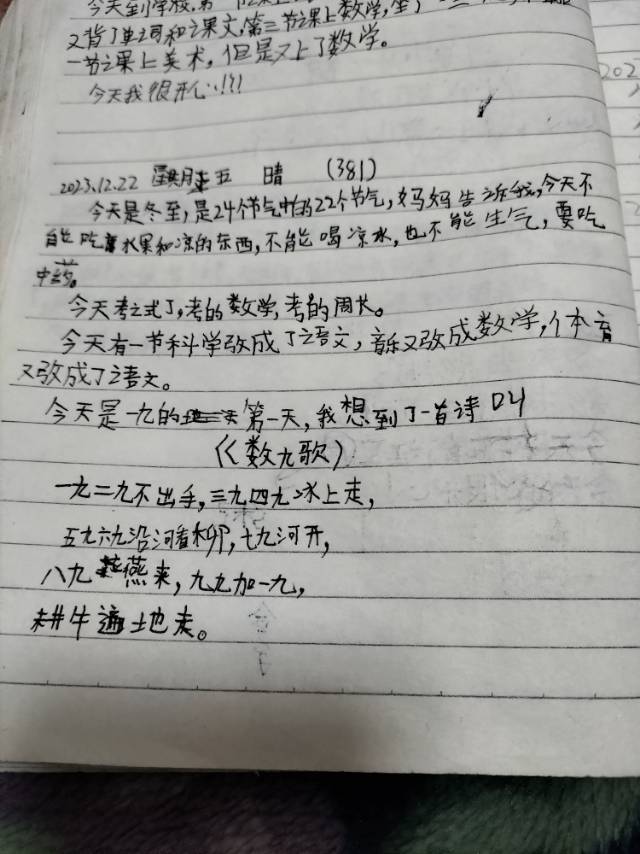 今天到学校,第一节课上
又背了单词和课文,第三节课上数学,
一节课上美术,但是又上了数学。
今天我很开心!!!
202
2023.12.22 星期五 晴 (381)
今天是冬至,是24个节气中的22个节气,妈妈告诉我,今天不
能吃水果和凉的东西,不能喝凉水,也不能生气,要吃
中药。
今天考试了,考的数学,考的周长。
今天有一节科学改成了语文,音乐又改成数学,体育
又改成了语文。
今天是一九的第一天,我想到了一首诗叫
《数九歌》
一九二九不出手,三九四九冰上走,
五九六九沿河看柳,七九河开,
八九燕来,九九加一九,
耕牛遍地走。